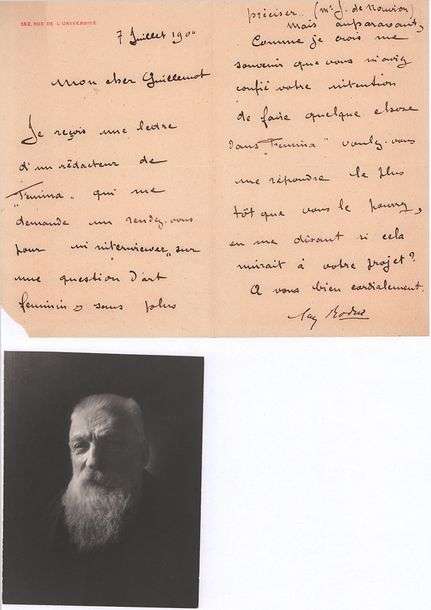 182, RUE DE L'UNIVERSITÉ
7 Juillet 19
Mon cher Guillemot
Je reçois une lettre
d'un rédacteur de
"Femina" qui me
demande un rendez-vous
pour "m'interviewer" sur
une question d'art
féminin, sans plus
préciser. (Mr J. de Nouvion)
Mais auparavant,
Comme je crois me
souvenir que vous m'aviez
confié votre intention
de faire quelque chose
dans "Femina" voulez-vous
me répondre le plus
tôt que vous le pourrez,
en me disant si cela
nuirait à votre projet?
A vous bien cordialement.
Aug Rodin